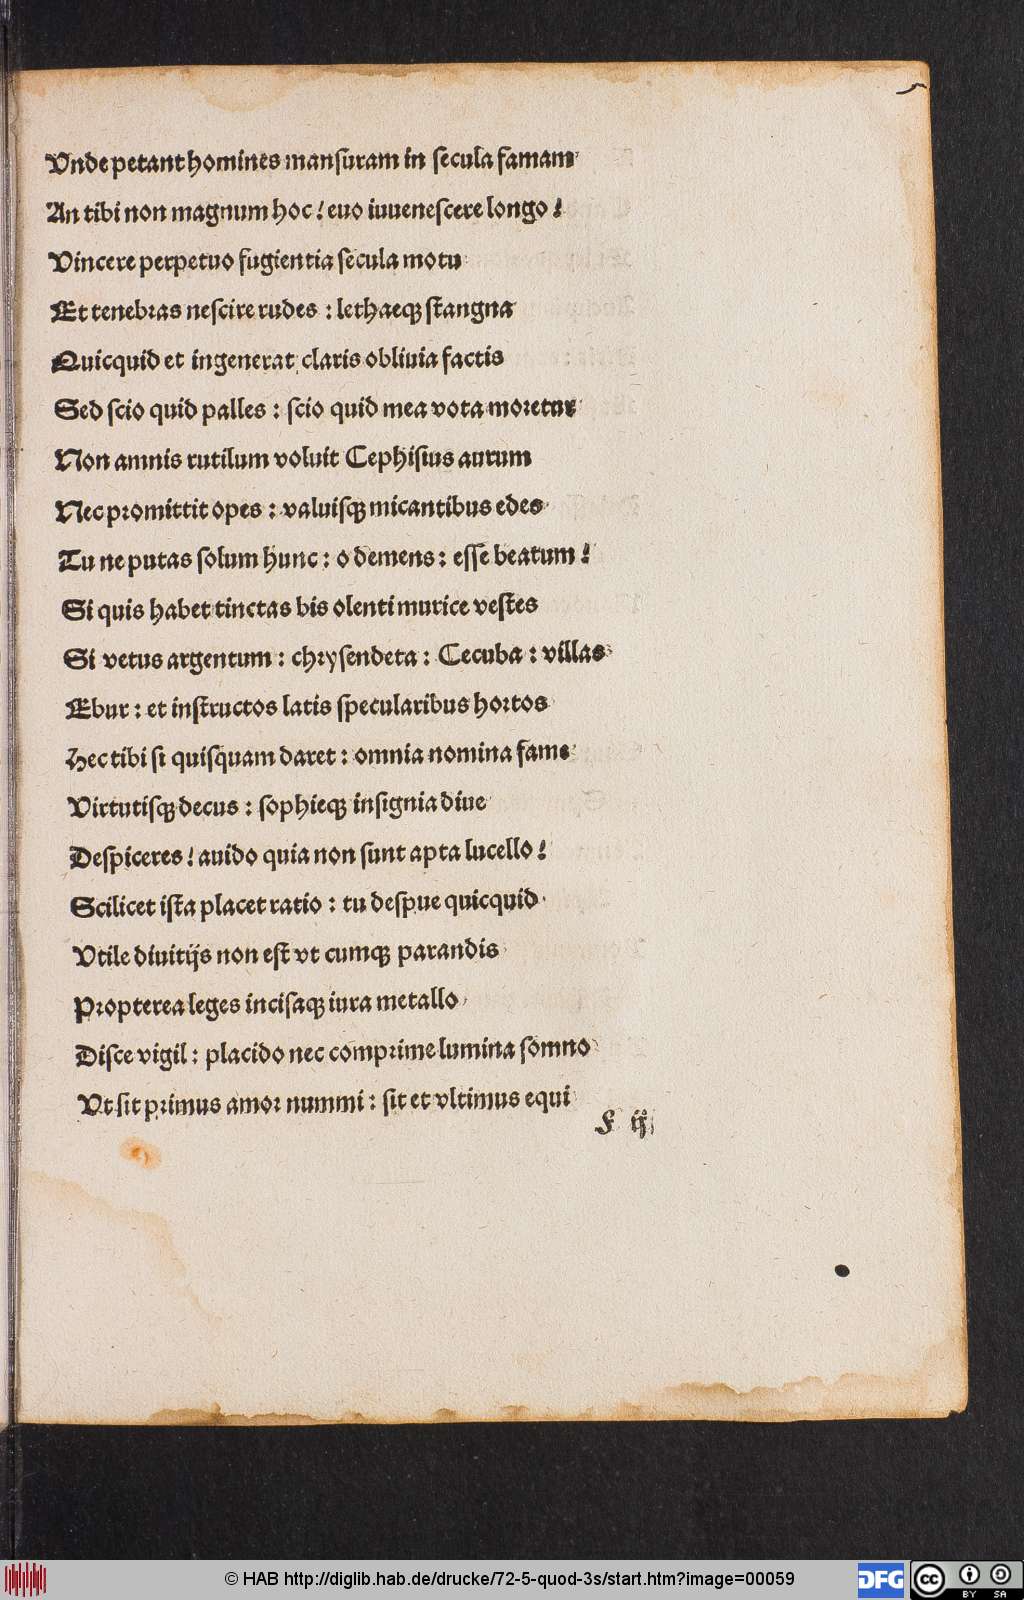 Vnde petant homines mansuram in secula famam
An tibi non magnum hoc! euo iuuenescere longo!
Vincere perpetuo fugientia secula motu
Et tenebras nescire rudes : lethaeqꝫ stangna
Quicquid et ingenerat claris obliuia factis
Sed scio quid palles : scio quid mea vota moretur
Non amnis rutilum voluit Cephisius aurum
Nec promittit opes : valuisqꝫ micantibus edes
Tu ne putas solum hunc : o demens : esse beatum!
Si quis habet tinctas bis olenti murice vestes
Si vetus argentum : chrysendeta : Cecuba : villas
Ebur : et instructos latis specularibus hortos
Hec tibi si quisquam daret : omnia nomina fame
Virtutisqꝫ decus : sophieqꝫ insignia diue
Despiceres! auido quia non sunt apta lucello!
Scilicet ista placet ratio : tu despue quicquid
Vtile diuitijs non est vt cumqꝫ parandis
Propterea leges incisaqꝫ iura metallo
Disce vigil : placido nec comprime lumina somno
Vt sit primus amor nummi : sit et vltimus equi
F ij
© HAB http://diglib.hab.de/drucke/72-5-quod-3s/start.htm?image=00059
DFG
cc
BY SA